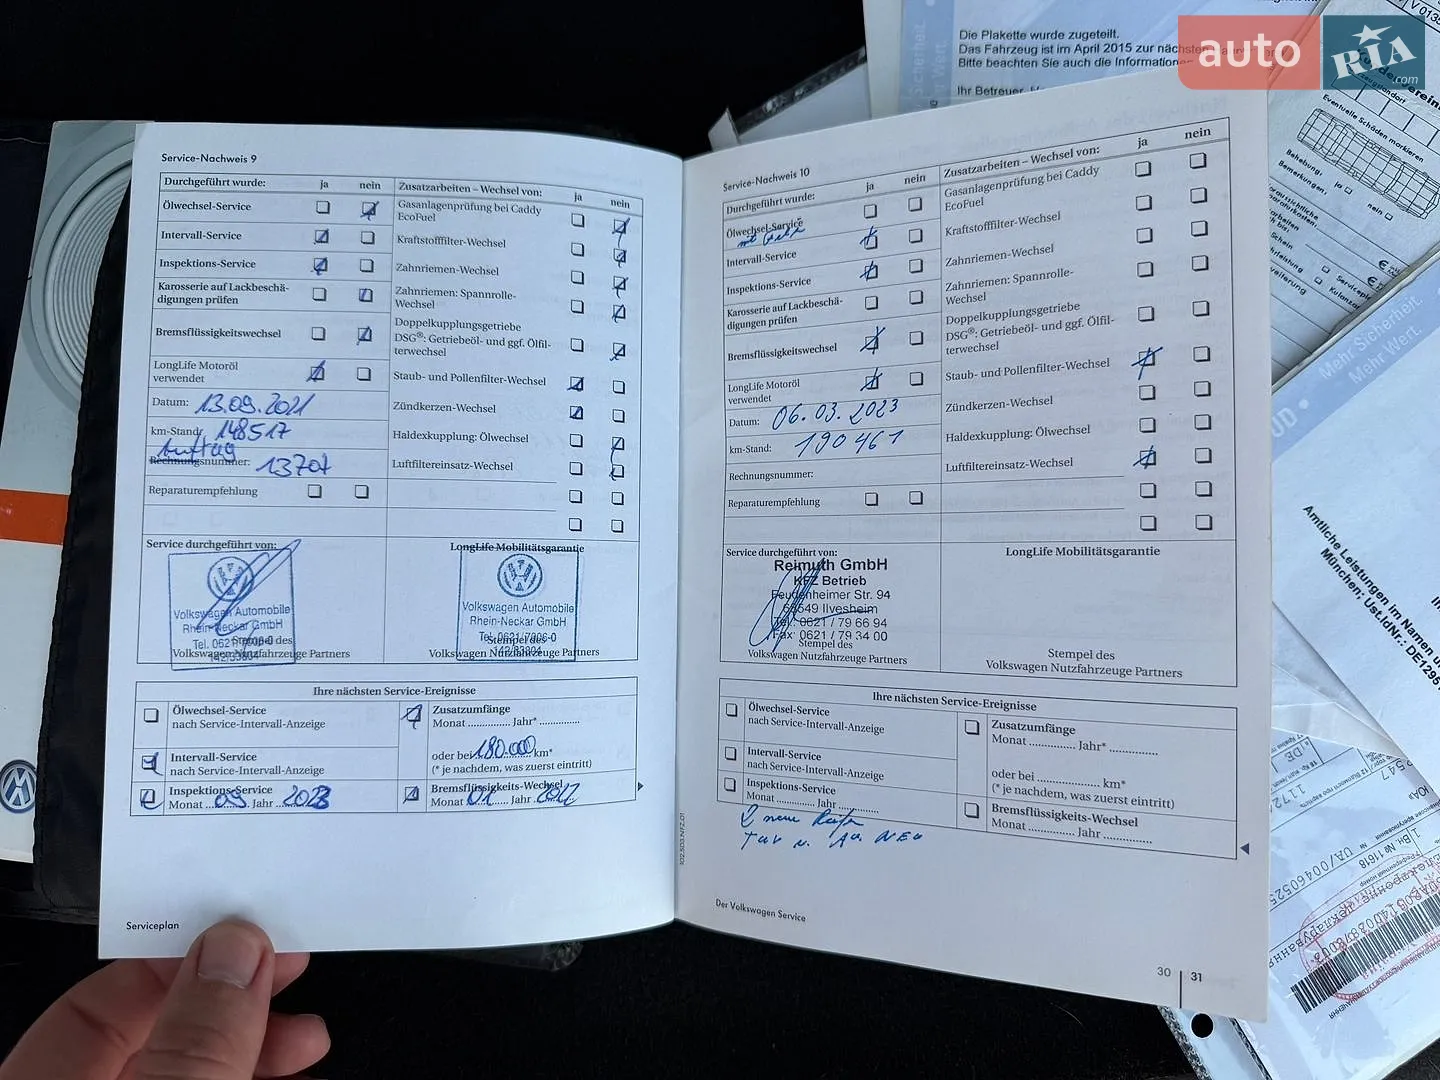 Die Plakette wurde zugeteilt.
Das Fahrzeug ist im April 2015 zur nächsten
Bitte beachten Sie auch die Informationen
Ihr Betreuer
auto RIA.com
Eventuelle Schäden markieren
Behebung, ja
Bemerkungen,
nein
Service-Nachweis 9
Durchgeführt wurde: ja nein
Ölwechsel-Service
Intervall-Service
Inspektions-Service
Karosserie auf Lackbeschä-
digungen prüfen
Bremsflüssigkeitswechsel
LongLife Motoröl
verwendet
Datum: 13.09.2021
km-Stand: 148517
Auftrag
Rechnungsnummer: 13707
Reparaturempfehlung
Zusatzarbeiten – Wechsel von: ja nein
Gasanlagenprüfung bei Caddy
EcoFuel
Kraftstofffilter-Wechsel
Zahnriemen-Wechsel
Zahnriemen: Spannrolle-
Wechsel
Doppelkupplungsgetriebe
DSG®: Getriebeöl- und ggf. Ölfil-
terwechsel
Staub- und Pollenfilter-Wechsel
Zündkerzen-Wechsel
Haldexkupplung: Ölwechsel
Luftfiltereinsatz-Wechsel
Service durchgeführt von:
Volkswagen Automobile
Rhein-Neckar GmbH
Stempel des
Volkswagen Nutzfahrzeuge Partners
LongLife Mobilitätsgarantie
Volkswagen Automobile
Rhein-Neckar GmbH
Tel. 0621/7906-0
Stempel des
142/33804
Volkswagen Nutzfahrzeuge Partners
Ihre nächsten Service-Ereignisse
Ölwechsel-Service
nach Service-Intervall-Anzeige
Intervall-Service
nach Service-Intervall-Anzeige
Inspektions-Service
Monat 09 Jahr 2023
Zusatzumfänge
Monat ............... Jahr* ...............
oder bei 180.000 km*
(* je nachdem, was zuerst eintritt)
Bremsflüssigkeits-Wechsel
Monat 01 Jahr 2022
Serviceplan
Service-Nachweis 10
Durchgeführt wurde: ja nein
Ölwechsel-Service
Intervall-Service
Inspektions-Service
Karosserie auf Lackbeschä-
digungen prüfen
Bremsflüssigkeitswechsel
LongLife Motoröl
verwendet
Datum: 06.03.2023
km-Stand: 190461
Rechnungsnummer:
Reparaturempfehlung
Zusatzarbeiten – Wechsel von: ja nein
Gasanlagenprüfung bei Caddy
EcoFuel
Kraftstofffilter-Wechsel
Zahnriemen-Wechsel
Zahnriemen: Spannrolle-
Wechsel
Doppelkupplungsgetriebe
DSG®: Getriebeöl- und ggf. Ölfil-
terwechsel
Staub- und Pollenfilter-Wechsel
Zündkerzen-Wechsel
Haldexkupplung: Ölwechsel
Luftfiltereinsatz-Wechsel
Service durchgeführt von:
Reimuth GmbH
KFZ Betrieb
Feudenheimer Str. 94
68549 Ilvesheim
Tel. 0621 / 79 66 94
Fax 0621 / 79 34 00
Stempel des
Volkswagen Nutzfahrzeuge Partners
LongLife Mobilitätsgarantie
Stempel des
Volkswagen Nutzfahrzeuge Partners
Ihre nächsten Service-Ereignisse
Ölwechsel-Service
nach Service-Intervall-Anzeige
Intervall-Service
nach Service-Intervall-Anzeige
Inspektions-Service
Monat .............. Jahr ..............
Zusatzumfänge
Monat ............... Jahr* ...............
oder bei .................... km*
(* je nachdem, was zuerst eintritt)
Bremsflüssigkeits-Wechsel
Monat ............... Jahr ...............
2 neue Reifen
TÜV u. AU NEU
Der Volkswagen Service
30 31
Mehr Sicherheit.
Mehr Wert.
Amtliche Leistungen im Namen
München: Ust.IdNr.: DE1295